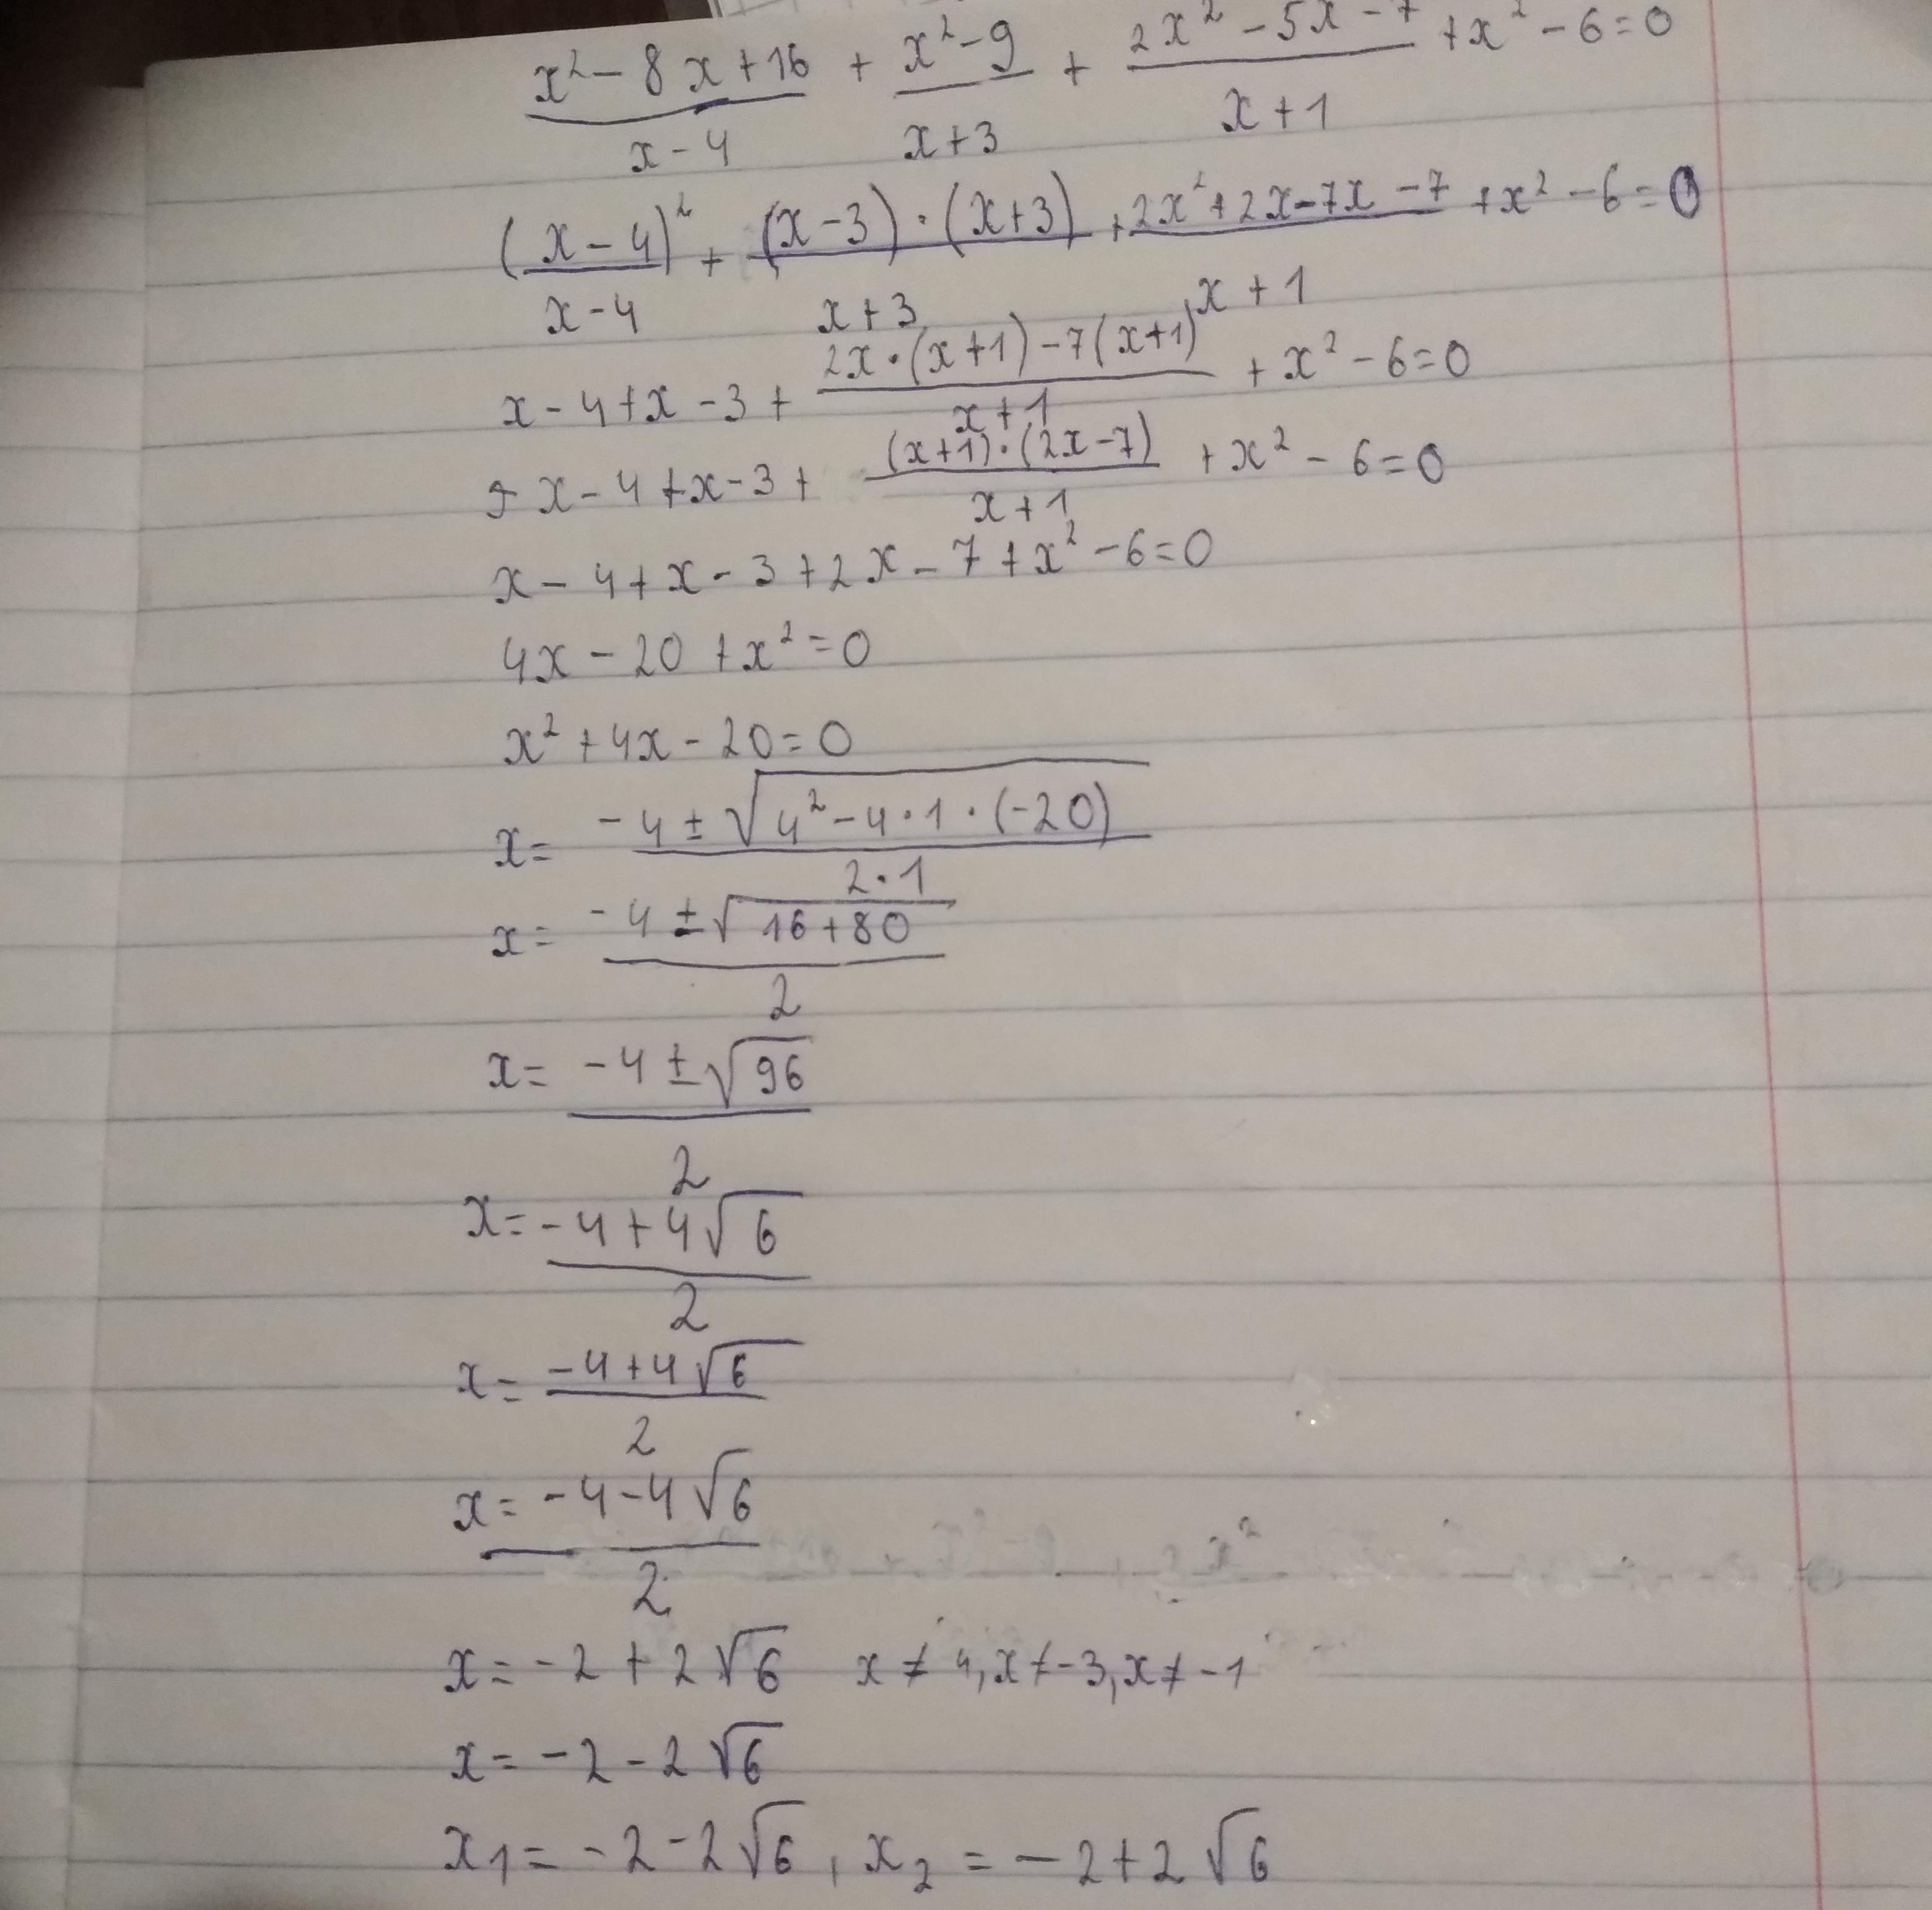 (x² - 8x + 16)/(x - 4) + (x² - 9)/(x + 3) + (2x² - 5x - 7)/(x + 1) + x² - 6 = 0
(x - 4)²/(x - 4) + (x - 3)·(x + 3)/(x + 3) + (2x² + 2x - 7x - 7)/(x + 1) + x² - 6 = 0
x - 4 + x - 3 + (2x·(x + 1) - 7(x + 1))/(x + 1) + x² - 6 = 0
x - 4 + x - 3 + (x + 1)·(2x - 7)/(x + 1) + x² - 6 = 0
x - 4 + x - 3 + 2x - 7 + x² - 6 = 0
4x - 20 + x² = 0
x² + 4x - 20 = 0
x = (-4 ± √(4² - 4·1·(-20)))/(2·1)
x = (-4 ± √(16 + 80))/2
x = (-4 ± √96)/2
x = (-4 + 4√6)/2
x = (-4 + 4√6)/2
x = (-4 - 4√6)/2
x = -2 + 2√6 x ≠ 4, x ≠ -3, x ≠ -1
x = -2 - 2√6
x₁ = -2 - 2√6, x₂ = -2 + 2√6